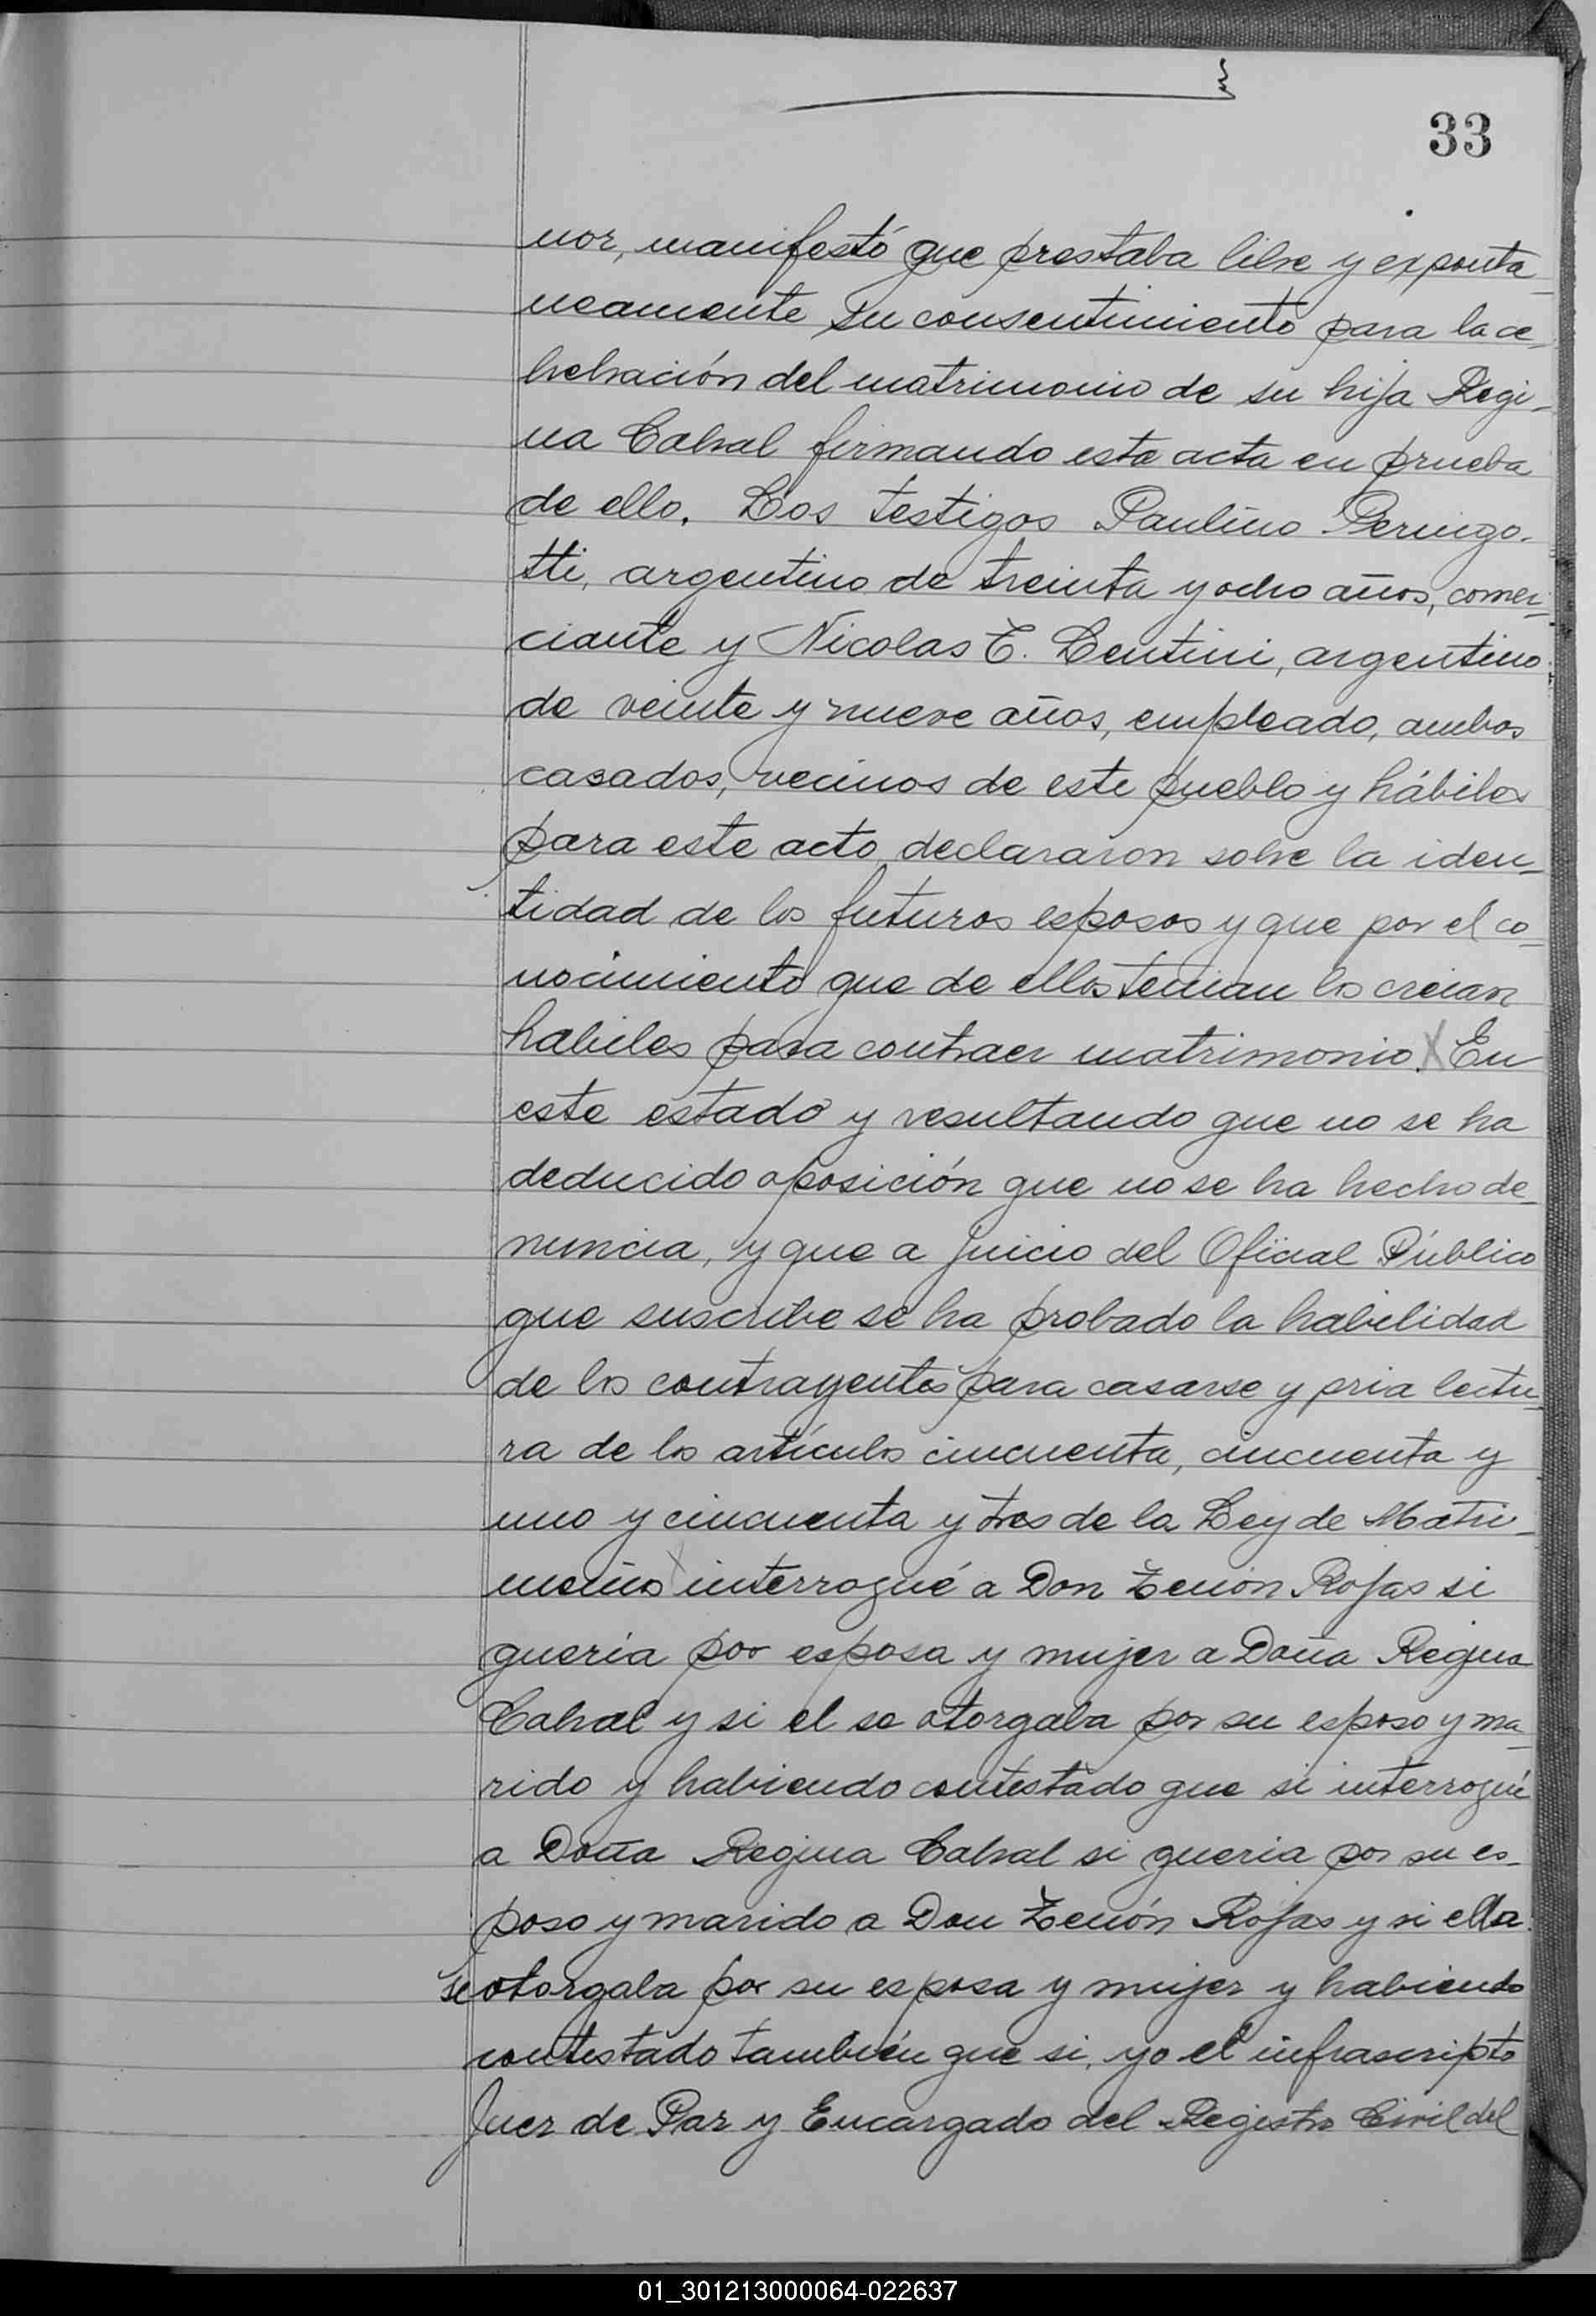 33
nor, manifestó que prestaba libre y exponta_
neamente su consentimiento para la ce_
lrebración del matrimonio de su hija Regi_
na Cabral firmando esta acta en prueba
de ello. Los testigos Paulino Peringo_
tti, argentino de treinta y ocho años, comer_
ciante y Nicolas T. Lentini, argentino
de veinte y nueve años, empleado, ambos
casados, vecinos de este pueblo y hábiles
para este acto, declararon sobre la iden_
tidad de los futuros esposos y que por el co_
nocimiento que de ellos tenian los creian
habiles para contraer matrimonio. En
este estado y resultando que no se ha
deducido oposición que no se ha hecho de_
nuncia, y que a juicio del Oficial Público
que suscribe se ha probado la habilidad
de los contrayentes para casarse y pria lectu_
ra de los artículos cincuenta, cincuenta y
uno y cincuenta y tres de la Ley de Matri_
monio interrogué a Don Zenón Rojas si
queria por esposa y mujer a Doña Regina
Cabral y si el se otorgaba por su esposo y ma_
rido y habiendo contestado que si interrogué
a Doña Regina Cabral si queria por su es_
poso y marido a Don Zenón Rojas y si ella
se otorgaba por su esposa y mujer y habiendo
contestado también que si, yo el infrascripto
Juez de Paz y Encargado del Registro Civil del
01_301213000064-022637